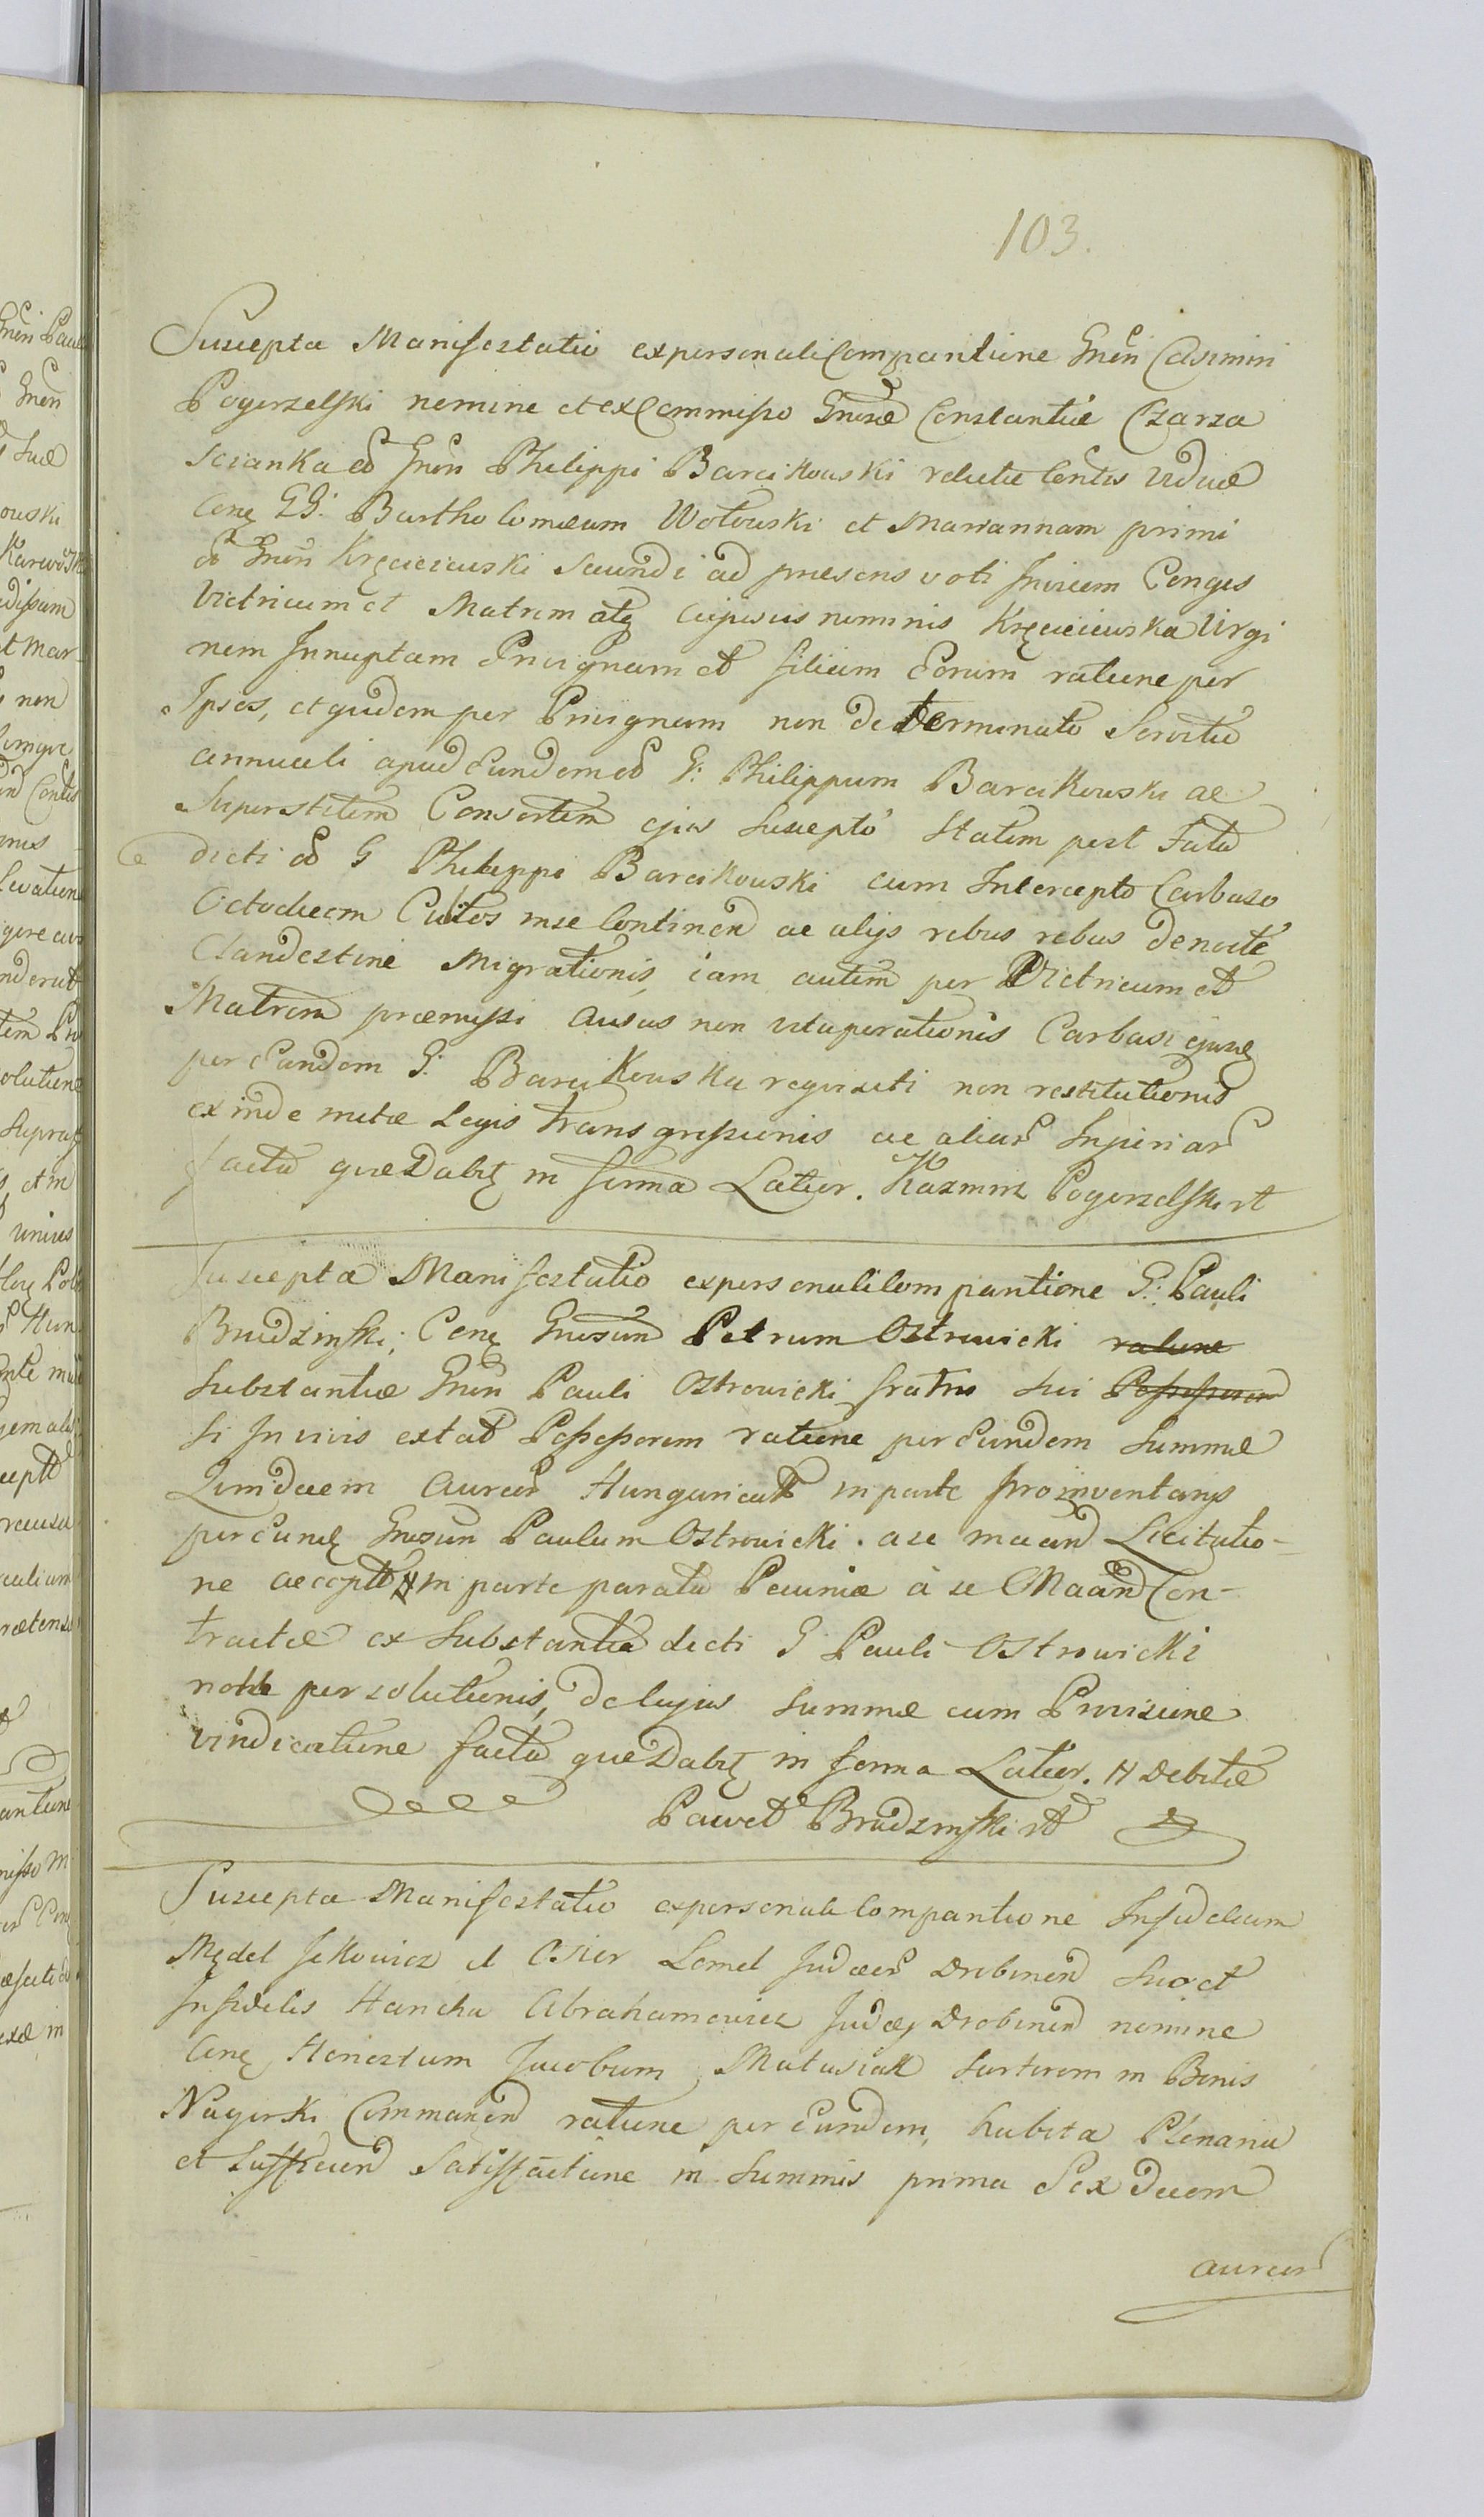 103.
Suscepta Manifestatio ex personali Comparitione Gnën Casimiri
Pogorzelski nomine et ex Commisso Gnosæ Constantiæ Czarza
scianka od Gnën Philippi Barcikowski relictæ Contis viduæ
Conq GG: Bartholomæum Wołowski et Mariannam primi
od Gnën Kręcieiewski secundi ad præsens voti Invicem Conges
Vitricum et Matrem atq cujusvis nominis Kręcieiewska Virgi
nem Innuptam Privignam et filiam Eorum ratione per
Ipsos, et quidem per Privignam non determinato Servitio
annuali apud Eundem od G: Philippum Barcikowski ac
Superstitem Consortem ejus suscepto statim post Fata
dicti od G Philippi Barcikowski cum Intercepto Carbaso
Octodecem Culitos in se Continen ac alijs rebus rebus de nocte
Clandestine Migrationis, iam autem per Vitricum et
Matrem præmissi ausus non vituperationis Carbasi ejusq
per Eandem G: Barcikowska requisiti non restitutionis
exinde metæ Legis transgressionis ac aliar Injuriar
facta quæ Dabit in forma Latior. Kazimirz Pogorzelski rt
Suscepta Manifestatio ex personali Comparitione G: Pauli
Brudzinski; Conq Gnosum Petrum Ostrowicki ratione
substantiæ Gnën Pauli Ostrowicki fratris sui Possessorem
si In vivis extat Possessorem ratione per Eundem Summæ
Quindecem Aureor Hungaricall in parte pro inventarijs
per Eunq Gnosum Paulum Ostrowicki. a se maan Licitatio-
ne accepto in parte parata Pecuniæ à se Maan Con-
tractæ ex Substantia dicti G Pauli Ostrowicki
non persolutionis, de cujus summæ cum Provisione
vindicatione facta quæ Dabit in forma Latior. # Debitæ
Paweł Brudzinski rt
Suscepta Manifestatio ex personali Comparitione Infidelium
Mędel Jckowicz et Osier Lemel Judæor Drobinen suo et
Infidelis Hancha Abrahamowicz Judæ Drobinen nomine
Conq Honestum Jacobum Matusiak Sartorem in Bonis
Nagorki Commanen ratione per Eundem, habita Plenaria
et Sufficien Satisfactione in Summis prima Sex decem
aureor